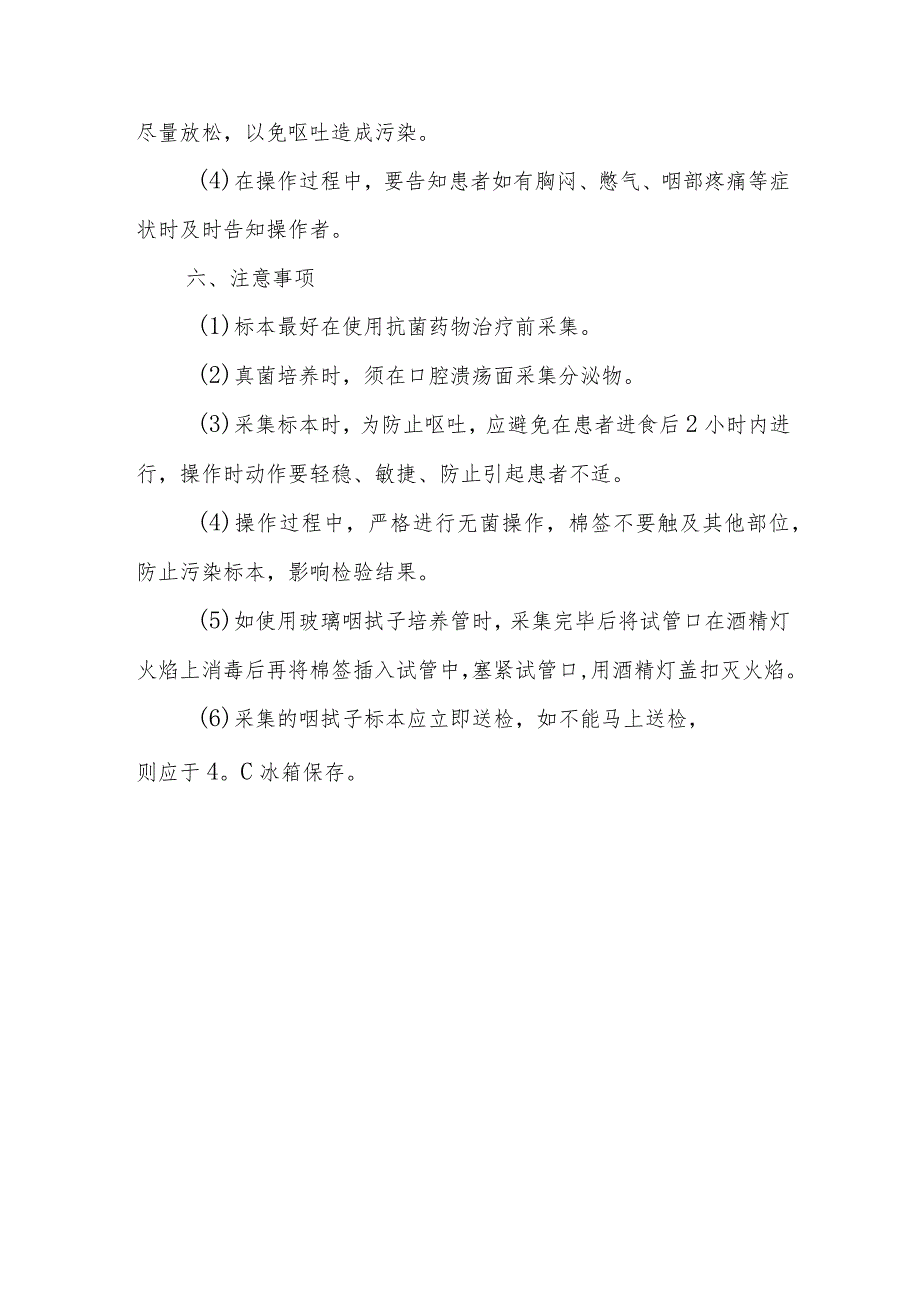 尽量放松，以免呕吐造成污染。
(4)在操作过程中，要告知患者如有胸闷、憋气、咽部疼痛等症
状时及时告知操作者。
六、注意事项
(1)标本最好在使用抗菌药物治疗前采集。
(2)真菌培养时，须在口腔溃疡面采集分泌物。
(3)采集标本时，为防止呕吐，应避免在患者进食后2小时内进
行，操作时动作要轻稳、敏捷、防止引起患者不适。
(4)操作过程中，严格进行无菌操作，棉签不要触及其他部位，
防止污染标本，影响检验结果。
(5)如使用玻璃咽拭子培养管时，采集完毕后将试管口在酒精灯
火焰上消毒后再将棉签插入试管中,塞紧试管口,用酒精灯盖扣灭火焰。
(6)采集的咽拭子标本应立即送检，如不能马上送检，
则应于4。C冰箱保存。